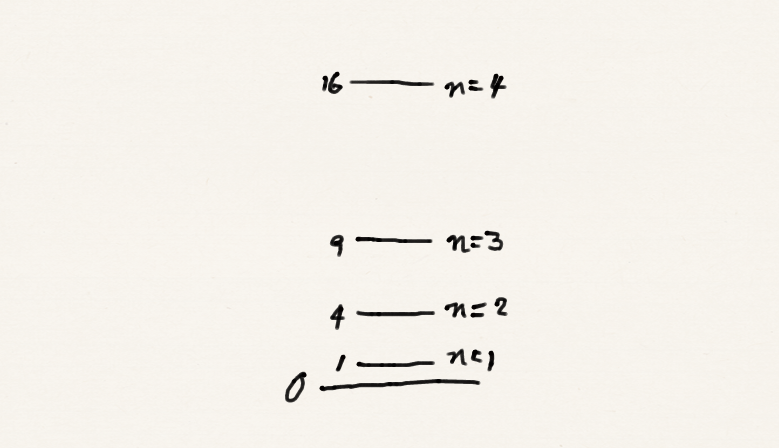 16 n=4
9 n=3
4 n=2
1 n=1
0